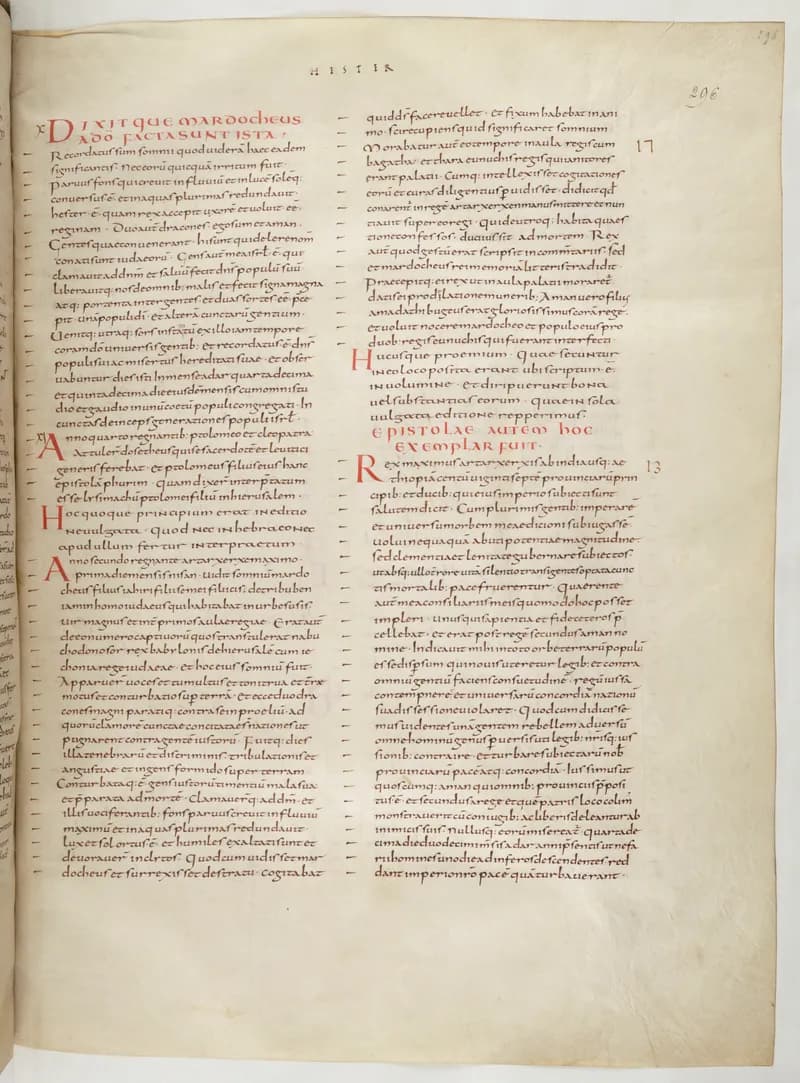 HESTER
296
DIXITQUE MARDOCHEUS
A DO FACTA SUNT ISTA ·
Recordatus sum somnii quod viderā haec eadem
significantis · nec eorū quicquā irritum fuit ·
parvus fons qui crevit in fluviū et in lucē solēq;
conversus ē · et in aquas plurimas redundavit ·
hester · ē · quam rex accepit uxorē et voluit eē ·
reginam · Duo autē dracones ego sum et aman ·
Gentes quae convenerant · hi sunt qui delere nom
conati sunt iudaeorū · Gens autē mea isrl · ē · qui
clamavit ad dnm et salvū fecit dns populū suū
liberavitq; nos de omnib; malis et fecit signa magna
atq; portenta inter gentes · et duas sortes eē p̄ce
pit · unā populi di et alterā cunctarū gentium ·
Venitq; utraq; sors in statutū ex illo iam tempore
coram dō universis gentib; et recordatus ē dns
populi sui ac misertus hereditati suae · et obser
vabuntur dies isti in mense adar quarta decima
et quinta decima die eiusdē mensis cum omni stu
dio et gaudio in unū coetū populi congregati · In
cunctas deinceps generationes populi isrl ·
XI Anno quarto regnantib; ptolomeo et cleopatra
Attuler dositheus qui se sacerdotē et leviticī
generis ferebat · et ptolomeus filius eius hanc
epistolā phurim · quam dixer interp̄tatum
esse lysimachū ptolomei filiū in hierusalem ·
Hoc quoque principium erat in editio
ne vulgata · quod nec in hebraeo nec
apud ullum fertur interpraetum
Anno secundo regnante artarxerxe maximo ·
prima die mensis nisan · vidit somniū mardo
cheus filius iabiri filii semei filii cis · de tribu ben
iamin homo iudaeus qui habitabat in urbe susis ·
vir magnus et int̄ primos aulae regiae · Erat autē
de eo numero captivorū quos transtulerat nabu
chodonosor rex babylonis de hierusalē cum ie
chonia rege iudaeae · et hoc eius somniū fuit ·
Apparuer voces et tumultus et tonitrua et terrae
motus et conturbatio sup̄ terrā · et ecce duo dra
cones magni paratiq; contra se in proeliū · ad
quorū clamorē cunctae concitatae s̄ nationes ut
pugnarent contra gentē iustorū · Fuitq; dies
illa tenebrarū et discriminis · tribulationis et
angustiae et ingens formido super terram
Conturbataq; ē gens iustorū timentiū mala sua
et p̄parata ad mortē · Clamaverq; ad dm · et
illis vociferantib; fons parvus crevit in fluviū
maximū et in aquas plurimas redundavit ·
lux et sol ortus ē · et humiles exaltati sunt et
devoraver inclitos · Quod cum vidisset mar
docheus et surrexisset de stratu · cogitabat
quid ds facere vellet · et fixum habebat in ani
mo · scire cupiens quid significaret somnium ·
Morabatur autē eo tempore in aula regis cum 17
bagatha · et thara eunuchis regis qui ianitores
erant palatii · Cumq; intellexisset cogitationes
eorū et curas diligentius p̄vidisset · didicit qđ
conarent̄ in regē artarxerxen manus mittere et nun
tiavit super eo regi · qui de utroq; habita quaes
tione confessos · duci iussit ad mortem · Rex
autē quod gestū erat scripsit in commentariis · sed
et mardocheus rei memoriā litteris tradidit ·
Praecepitq; ei rex ut in aula palatii moraret̄
datis ei pro dilatione munerib; Aman vero filius
amadathi bugeus erat gloriosissimus corā rege ·
et voluit nocere mardocheo et populo eius pro
duob; regis eunuchis qui fuerant interfecti ·
Hucusque proemium · Quae secuntur
in eo loco posita erant ubi scriptum · ē ·
in volumine · et diripuerunt bona
vel substantias eorum · quae in sola
vulgata editione repperimus ·
EPISTOLAE AUTEM HOC
EXEMPLAR FUIT ·
Rex maximus artarxerxis ab india usq; ae 13
thiopiā centū viginti septē provinciarū prin
cipib; et ducib; qui eius imperio subiecti sunt
salutem dicit · Cum plurimis gentib; imperarē
et universum orbem meae dicioni subiugassē ·
volui nequaquā abuti potentiae magnitudine ·
sed clementia et lenitate gubernare subiectos
ut absq; ullo terrore vitā silentio transigentes optata cunc
tis mortalib; pace fruerentur · Quaerente
autē me a consiliariis meis quomodo hoc posset
impleri · Unus qui sapientia et fide ceteros p̄
cellebat · et erat post regē secundus aman no
mine · Indicavit mihi in toto orbe terrarū populū
eē dispersum qui novis uteretur legib; et contra
omniū gentiū faciens consuetudinē · regū iussa
contempneret et universarū concordiā nationū
sua dissessione violaret · Quod cum didicisse
mus videntes unā gentem rebellem adversū
omne hominū genus p̄versis uti legib; nrisq; ius
sionib; contraire · et turbare subiectarū nob
provinciarū pacē atq; concordiā · Iussimus ut
quoscumq; aman qui omnib; provinciis p̄posi
tus ē · et secundus a rege et quē patris loco colim
monstraverit cū coniugib; ac liberis deleantur ab
inimicis suis · nullusq; eorū misereat̄ quarta de
cima die duodecimi mensis adar anni p̄sentis ut nefa
rii homines uno die ad inferos descendentes red
dant imperio nro pacē quā turbaverant ·